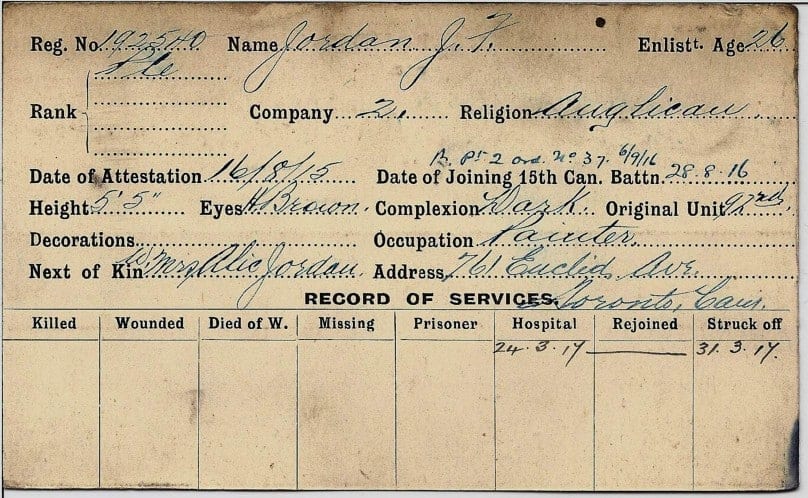 Reg. No. 192540 Name Jordan J. F. Enlistt. Age 26
Rank Pte Company 2. Religion Anglican
B. Pt 2 ord. No 37. 6/9/16
Date of Attestation 16/8/15 Date of Joining 15th Can. Battn. 28.8.16
Height 5' 5" Eyes Brown. Complexion Dark Original Unit 92nd
Decorations Occupation Painter.
Next of Kin Mrs Alic Jordan. Address 761 Euclid Ave.
RECORD OF SERVICES. Toronto, Can.
Killed Wounded Died of W. Missing Prisoner Hospital Rejoined Struck off
24.3.17 31.3.17.